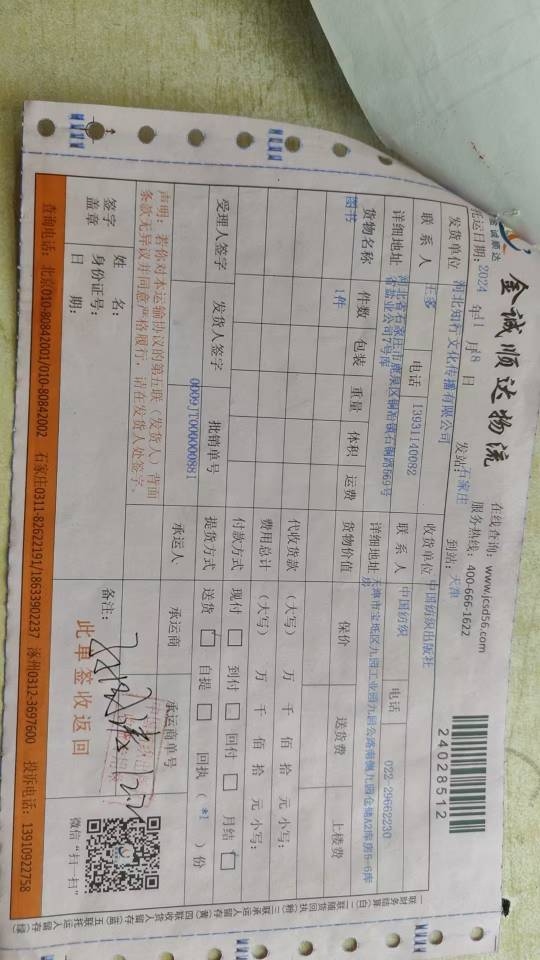 金诚顺达物流
在线查询：www.jcsd56.com
服务热线：400-666-1622
24028512
托运日期：2024 年11 月18 日 发站：石家庄 到站：天津
发货单位 河北知行文化传播有限公司 收货单位 中国纺织出版社
联系人 王多 电话 13931140082 联系人 中国纺织 电话 022-29662230
详细地址 河北省石家庄市鹿泉区铜冶镇石铜路669号省盐业公司7号库 详细地址 天津市宝坻区九园工业园九园公路南侧九园仓储A2库房5-6库房
货物名称 件数 包装 重量 体积 运费 货物价值 保价 送货费 上楼费
图书 1件
代收货款 （大写） 万 仟 佰 拾 元 小写：
费用总计 （大写） 万 仟 佰 拾 元 小写：
付款方式 现付 到付 回付 月结
受理人签字 发货人签字 批销单号 提货方式 送货 自提 回执（ *1 ）份
0009JT000000881 承运人 承运商 承运商单号
声明：若你对本运输协议的第五联（发货人）背面
条款无异议并同意严格履行，请在发货人处签字。
签字
盖章
姓 名：
身份证号：
日 期：
备注：
此单签收返回
微信“扫一扫”
查询电话：北京010-80842001/010-80842002 石家庄0311-82622191/18633902237 涿州0312-3697600 投诉电话：13910922758